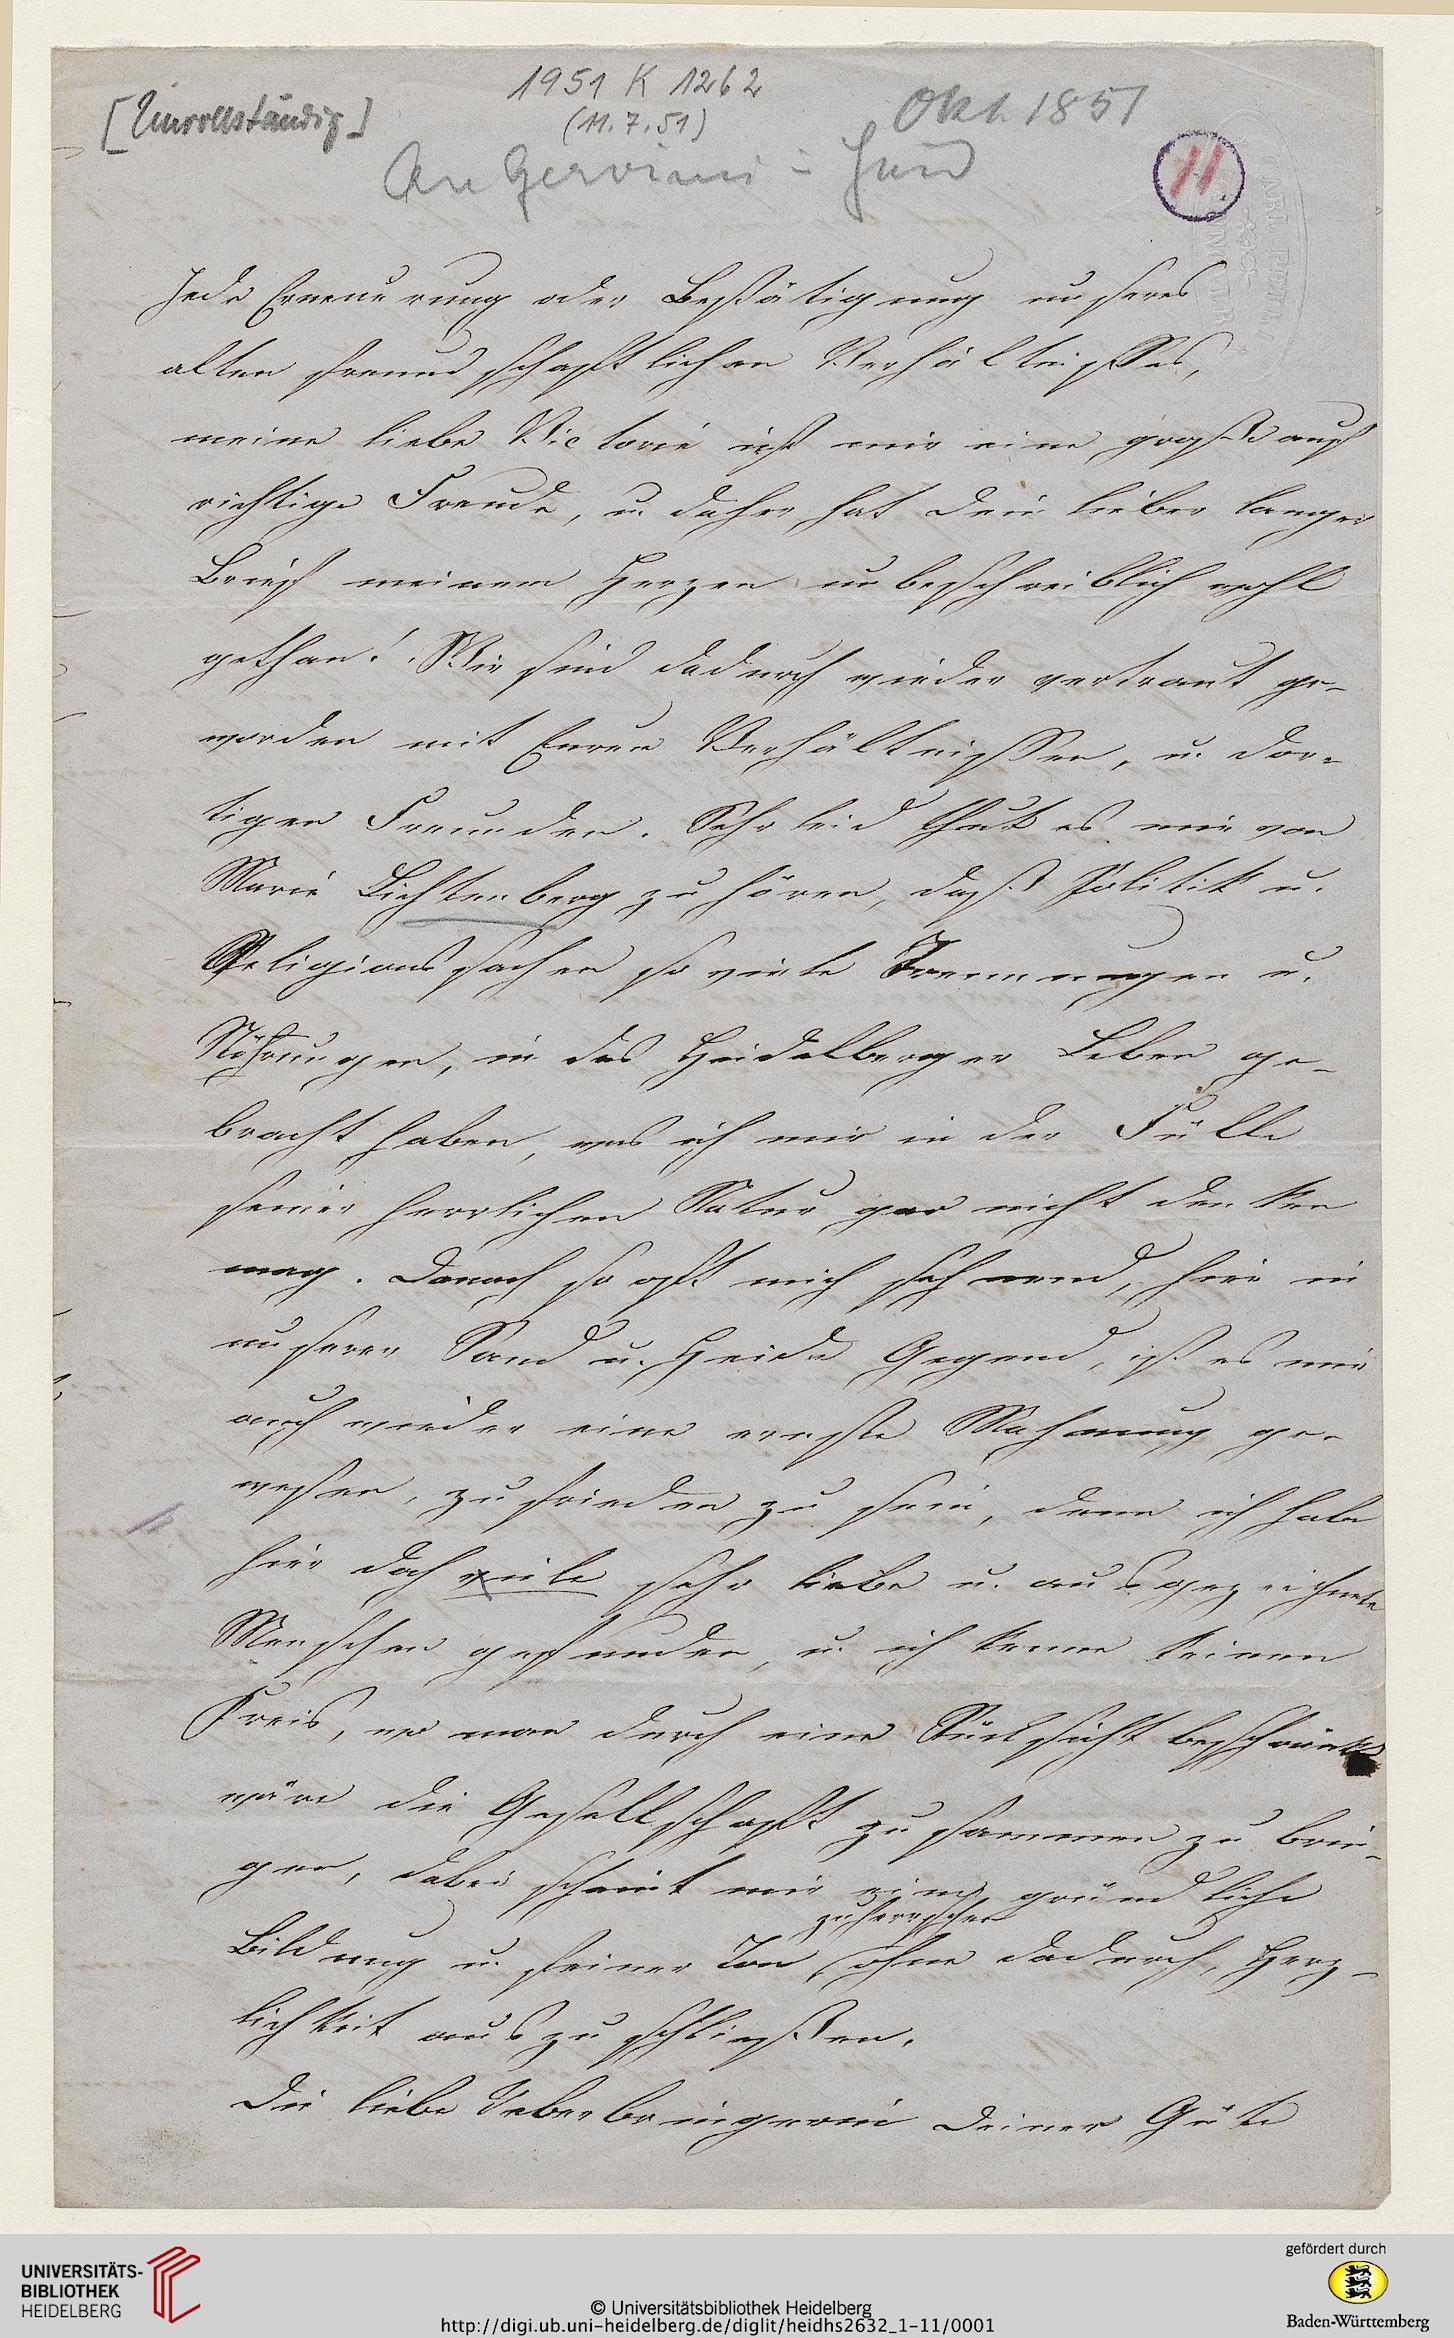 [Unvollständig]
1951 K 1262
(11.7.51)
Okt. 1851
An Gervinus -
11
Jede Erneuerung oder Bestätigung unseres
alten freundschaftlichen Verhältnisses,
meine liebe Victorie ist mir eine große auf
richtige Freude, u. daher hat Dein lieber langer
Brief meinem Herzen unbeschreiblich wohl
gethan! Wir sind dadurch wieder vertraut ge-
worden mit Euren Verhältnissen, u. dor-
tigen Freunden. Sehr leid thut es mir von
Marie Lichtenberg zu hören, daß Politik u.
Religionssachen so viele Trennungen u.
Störungen, in das Heidelberger Leben ge-
bracht haben, was ich mir in der Fülle
seiner herrlichen Natur gar nicht denken
mag. Danach so oft mich sehnend, hier in
unserer Sand u. Heide Gegend, ist es mir
auch wieder eine ernste Mahnung ge-
wesen, zufrieden zu sein, denn ich habe
hier doch viele sehr liebe u. ausgezeichnete
Menschen gefunden, u. ich kenne keinen
Kreis, wo man durch eine Rücksicht beschränkt
wäre die Gesellschaft zusammen zu brin-
gen, dabei scheint mir eine gründliche
zu herrschen
Bildung u. feiner Ton, ohne dadurch, Herz-
lichkeit auszuschließen.
Die liebe Ueberbringerin Deiner Güte
UNIVERSITÄTS-
BIBLIOTHEK
HEIDELBERG
© Universitätsbibliothek Heidelberg
http://digi.ub.uni-heidelberg.de/diglit/heidhs2632_1-11/0001
gefördert durch
Baden-Württemberg